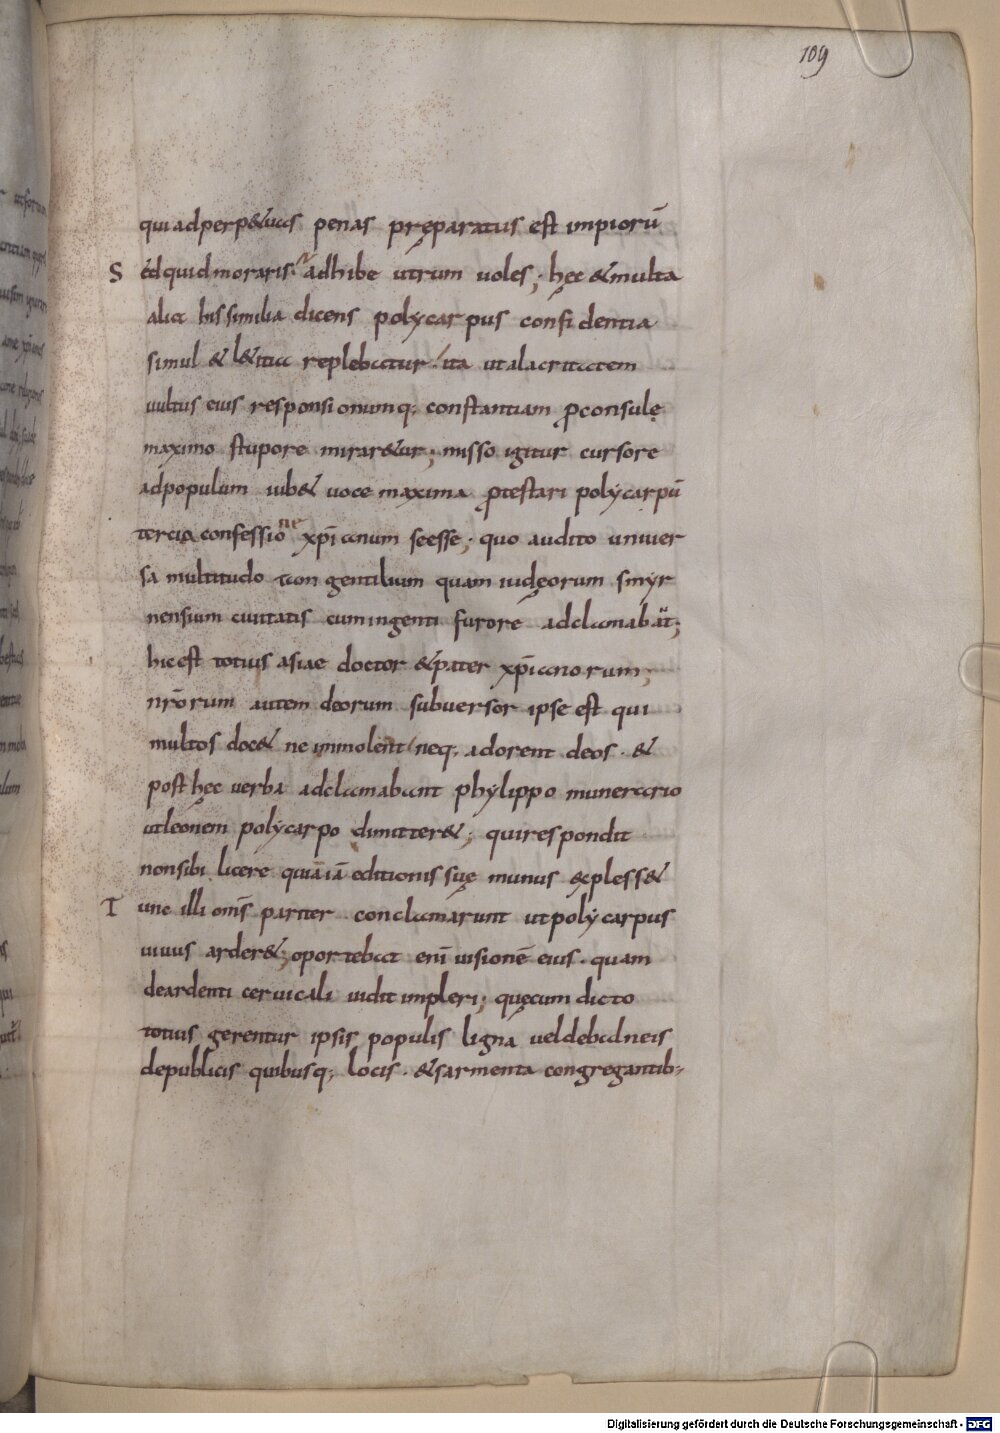 109
qui ad perp&uas penas pręparatus est impiorū
Sed quid moraris? adhibe utrum uoles; hęc & multa
alia his similia dicens polycarpus confidentia
simul & l&itia replebatur. ita ut alacritatem
uultus eius responsionumq; constantiam proconsulę
maximo stupore mirar&ur; misso igitur cursore
ad populum iub& uoce maxima protestari polycarpū
tercia confessione xp̄ianum se esse; quo audito uniuer
sa multitudo tam gentilium quam iudęorum smyr
nensium ciuitatis cum ingenti furore adclamabat;
hic est totius asiae doctor & pater xp̄ianorum;
nr̄orum autem deorum subuersor ipse est qui
multos doc& ne immolent neq; adorent deos. &
post hęc uerba adclamabant phylippo munerario
ut leonem polycarpo dimitter&; qui respondit
non sibi licere quia iā editionis suę munus expless&
Tunc illi om̄s pariter conclamarunt ut polycarpus
uiuus arder&; oportebat enī uisionē eius. quam
de ardenti ceruicali uidit impleri; quę cum dicto
totius gerentur ipsis populis ligna uel de badneis
de publicis quibusq; locis. & sarmenta congregantib;
Digitalisierung gefördert durch die Deutsche Forschungsgemeinschaft - DFG